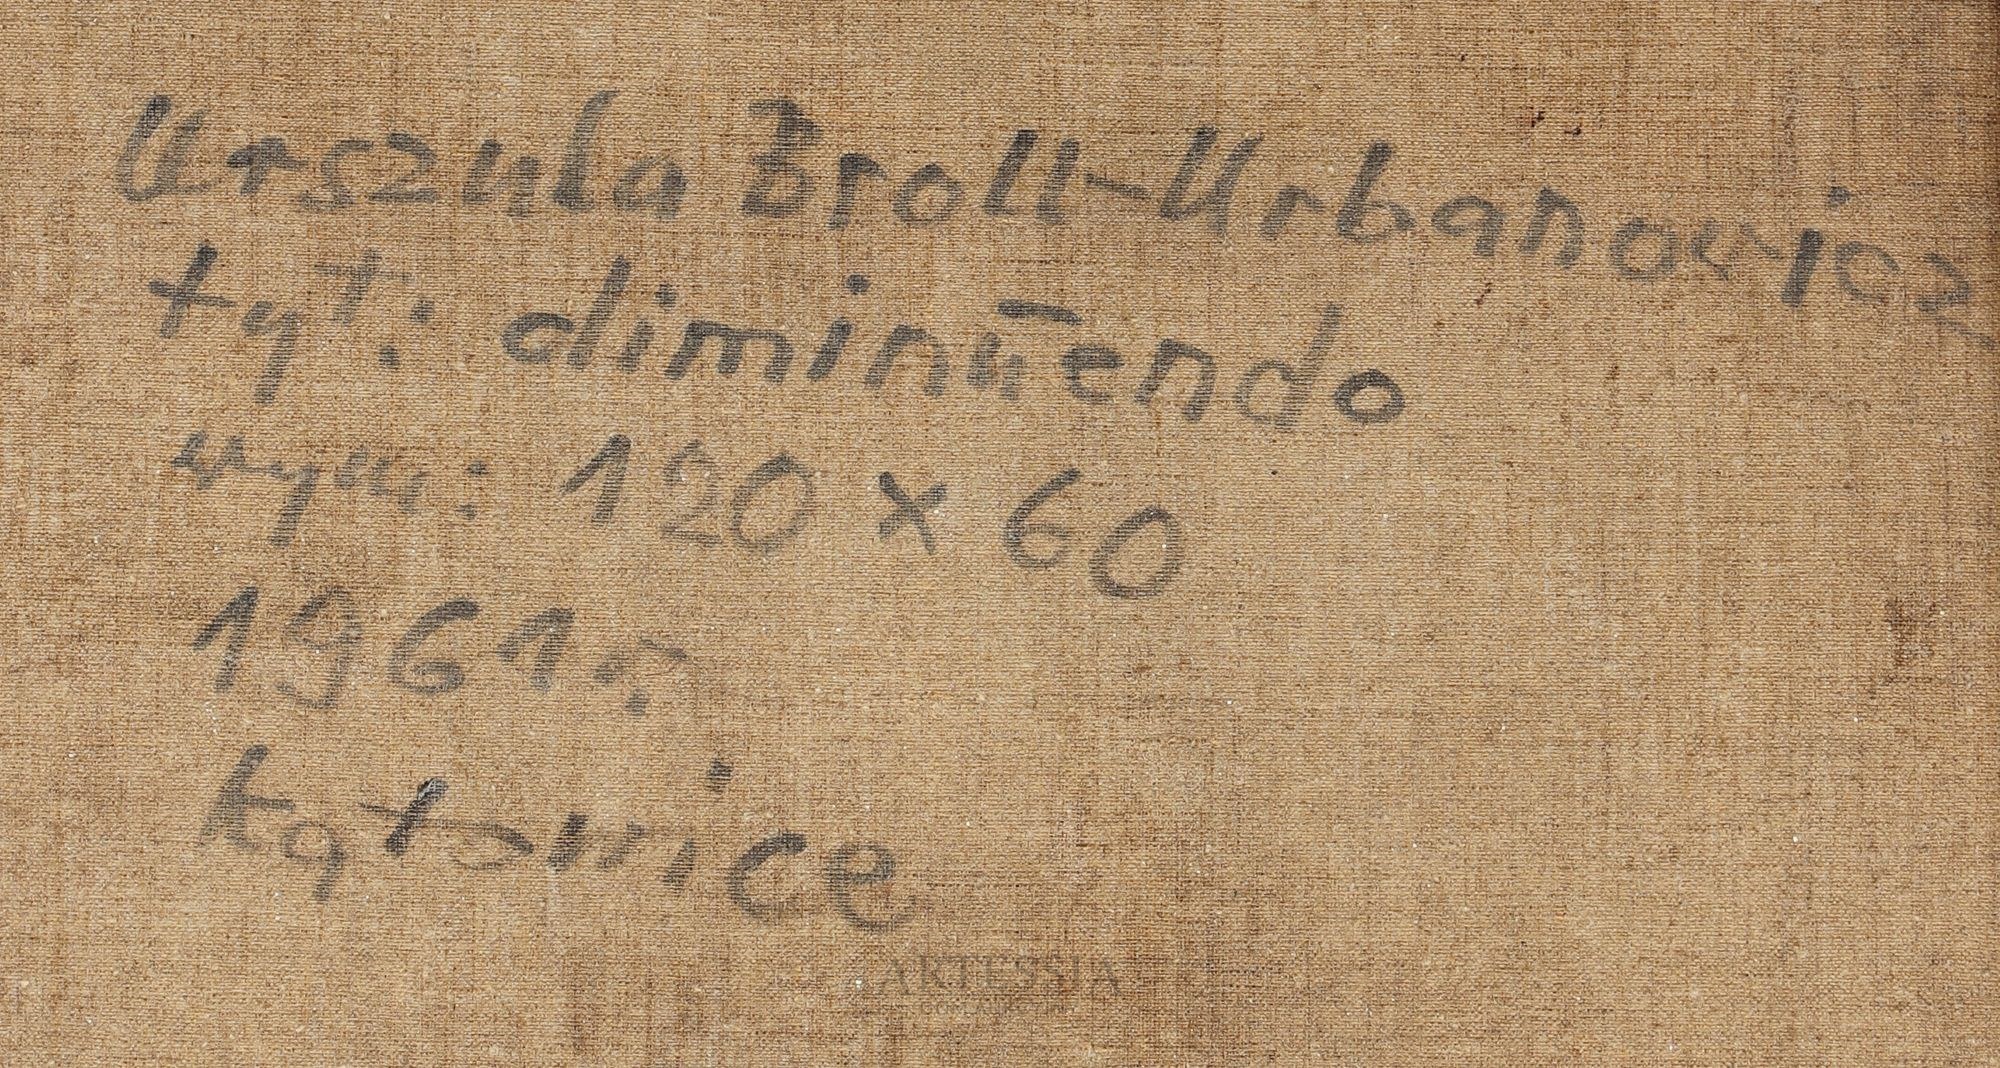 Urszula Broll-Urbanowicz
tyt: diminūendo
wym: 120 x 60
1961 r.
katowice
ARTESSIA